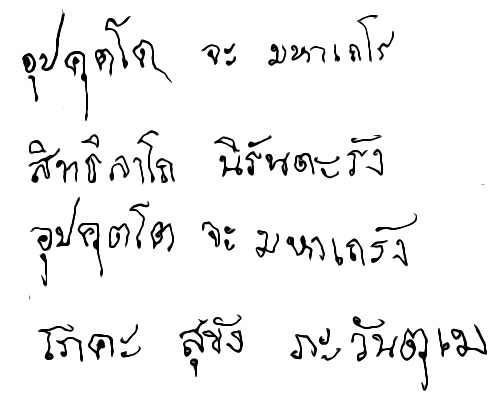 อุปคุตโต จะ มหาเถโร
สิทธิลาโภ นิรันตะรัง
อุปคุตโต จะ มหาเถรัง
โภคะ สุขัง ภะวันตุเม